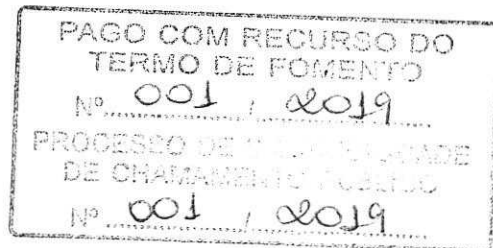 PAGO COM RECURSO DO
TERMO DE FOMENTO
Nº 001 / 2019
PROCESSO DE
DE CHAMAMENTO PÚBLICO
Nº 001 / 2019